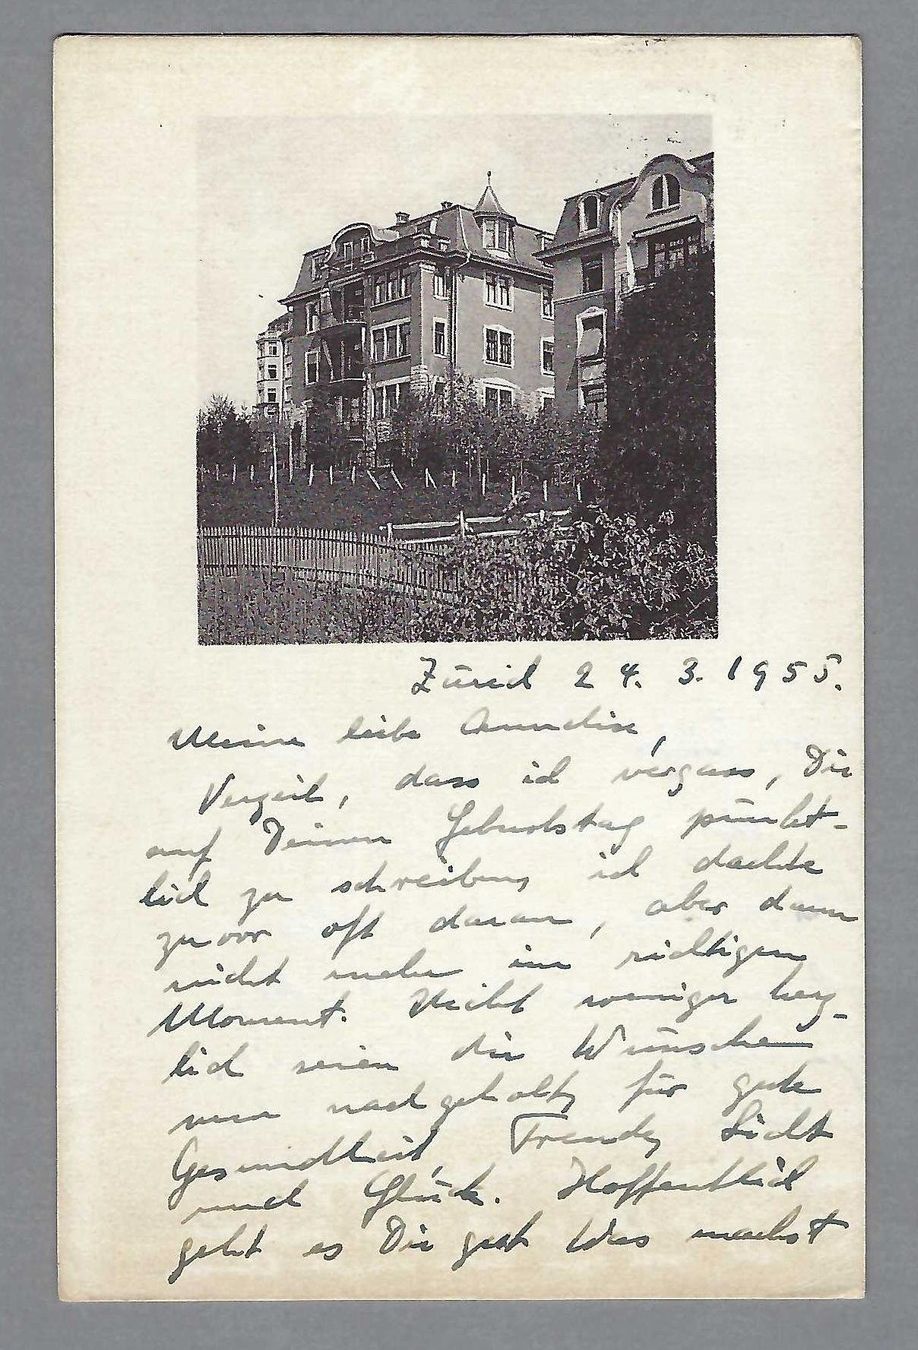 Zürich 24. 3. 1955.
Meine liebe Annelise,
Verzeih, dass ich vergass, Dir
auf Deinen Geburtstag pünkt-
lich zu schreiben, ich dachte
zuvor oft daran, aber dann
nicht mehr im richtigen
Moment. Nicht weniger herz-
lich seien die Wünsche
nun nachgeholt, für gute
Gesundheit, Freude, Licht
und Glück. Hoffentlich
geht es Dir gut. Was machst